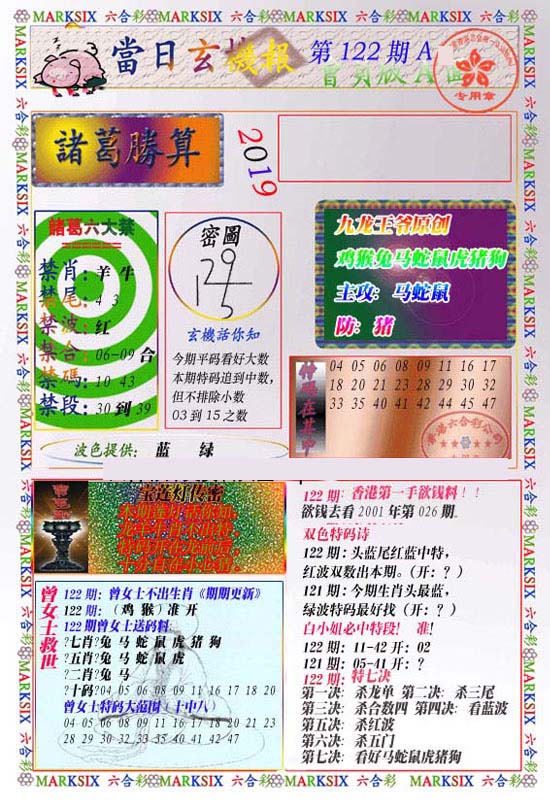 MARKSIX 六合彩 MARKSIX 六合彩 MARKSIX 六合彩 MARKSIX 六合彩
當日玄機报
第 122 期 A
专用章
諸葛勝算
2019
諸葛六大禁
禁肖：羊 牛
禁尾：4 3
禁波：红
禁合：06-09 合
禁碼：10 43
禁段：30 到 39
密圖
玄機話你知
今期平码看好大数
本期特码追到中数，
但不排除小数
03 到 15 之数
九龙王爷原创
鸡猴兔马蛇鼠虎猪狗
主攻：马蛇鼠
防：猪
特码在其中
04 05 06 08 09 11 16 17
18 20 21 23 28 29 30 32
33 35 40 41 42 44 45 47
波色提供：
蓝 绿
宝莲灯传密
曾女士救世
122 期：曾女士不出生肖《期期更新》
122 期：（鸡 猴）准开
122期曾女士送码料：
?七肖?兔 马 蛇 鼠 虎 猪 狗
?五肖?兔 马 蛇 鼠 虎
?二肖?兔 马
?十码?04 05 06 08 09 11 16 17 18 20
曾女士特码大范围（十中八）
04 05 06 08 09 11 16 17 18 20 21 23
28 29 30 32 33 35 40 41 42 47
122 期：香港第一手欲钱料！！
欲钱去看 2001 年第 026 期
双色特码诗
122 期：头蓝尾红蓝中特，
红波双数出本期。（开：？）
121 期：今期生肖头最蓝，
绿波特码最好找（开：？）
白小姐必中特段！ 准！
122 期：11-42 开：02
121 期：05-41 开：？
122 期：特七决
第一决：杀龙单 第二决：杀三尾
第三决：杀合数四 第四决：看蓝波
第五决：杀红波
第六决：杀五门
第七决：看好马蛇鼠虎猪狗
MARKSIX 六合彩 MARKSIX 六合彩 MARKSIX 六合彩 MARKSIX 六合彩